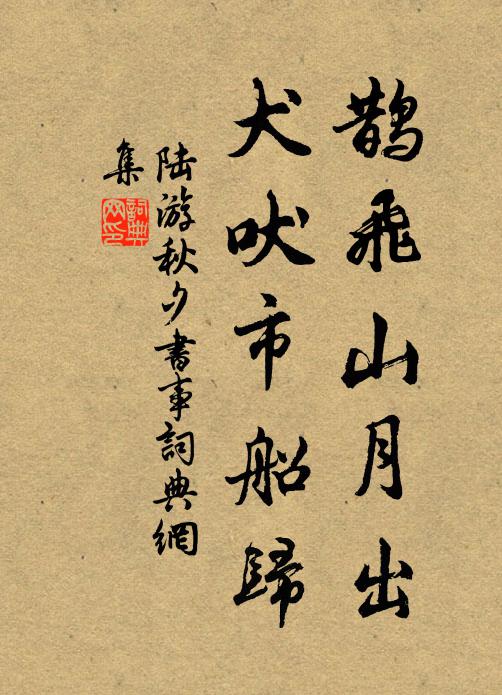 鵲飛山月出
犬吠市船歸
陆游秋夕書事詞典網
集
詞典
网印